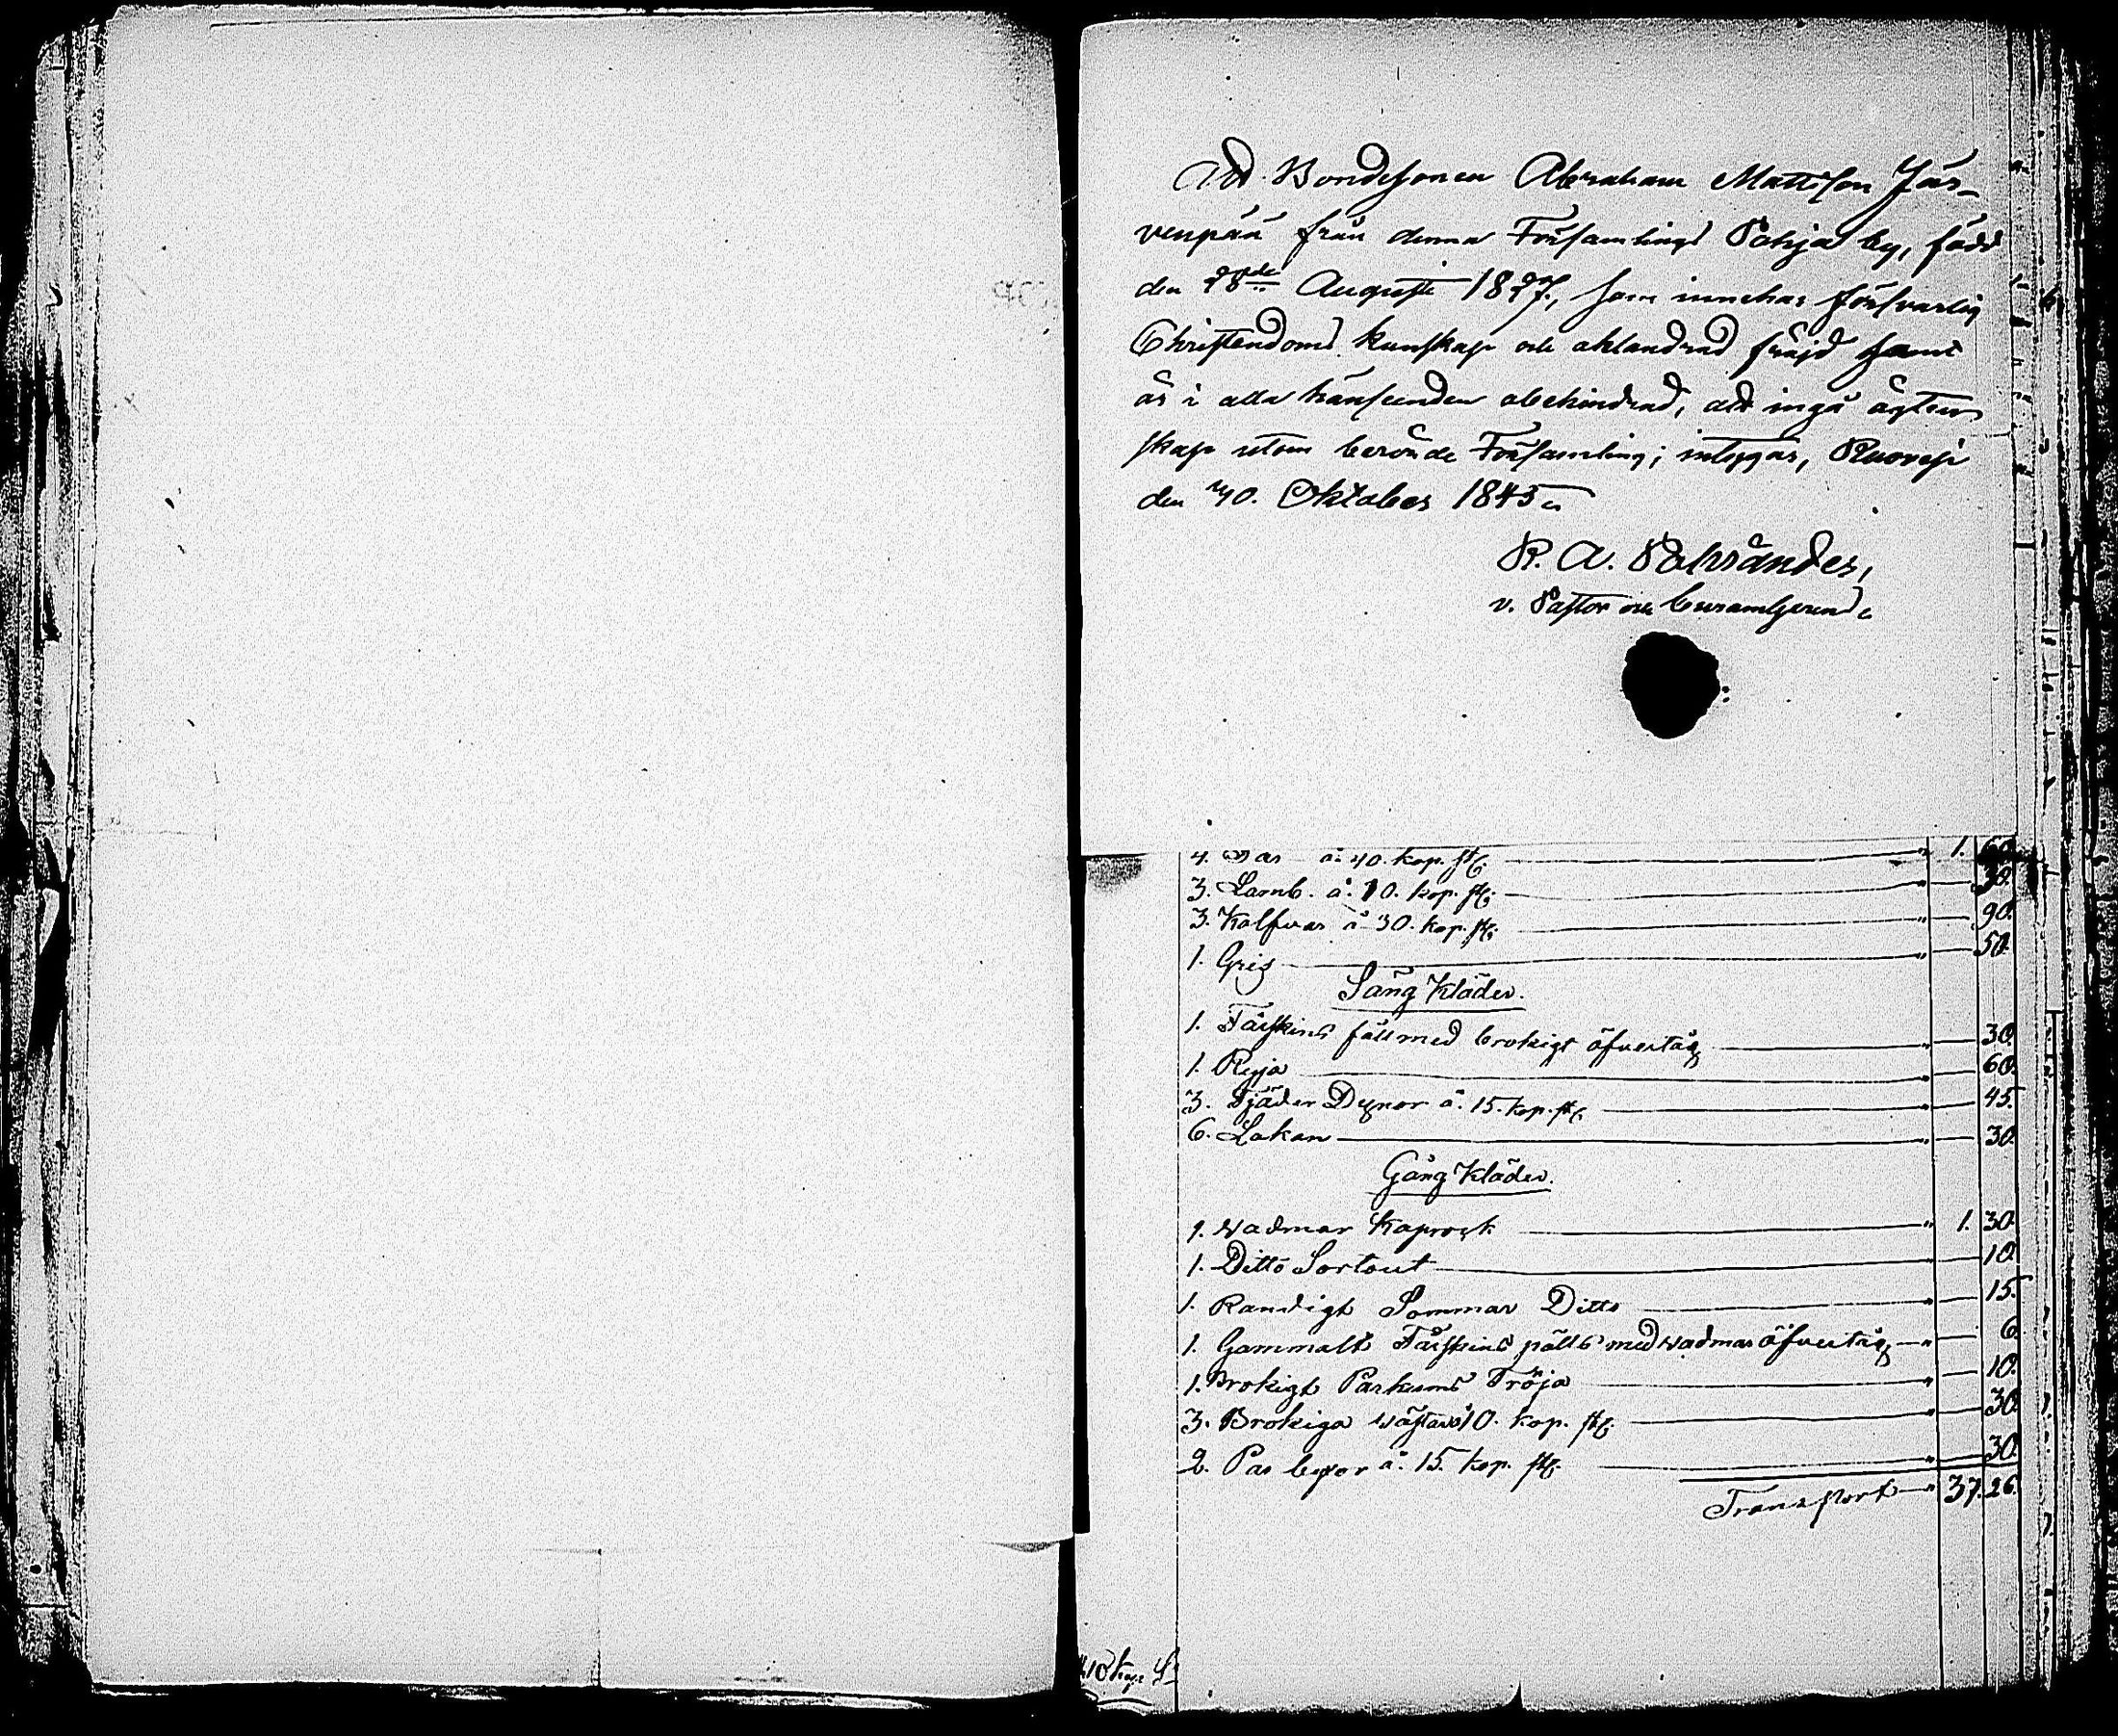 Att Bondesonen Abraham Mattsson Jär-
venpää från denna Församlings Pohja by, född
den 28de Augusti 1827, som innehar försvarlig
Christendoms kunskap och oklandrad fräjd samt
är i alla hänseenden obehindrad, att ingå ägten-
skap utom berörde Församling; intygas, Ruovesi
den 30. Oktober 1845.
R. A.
v. Pastor och
4. Får à 40. kop. st. 1. 60.
3. Lamb. à. 10. kop. st. 30.
3. Kalfvar à 30. kop. st. 90.
1. Gris 50.
Säng Kläder.
1. Fårskins fäll med brokigt öfvertåg 30.
1. Ryja 60.
3. Fjäder Dynor à. 15. kop. st. 45.
6. Lakan 30.
Gång Kläder.
1. Wadmar Kaprock 1. 30.
1. Ditto Sortout 10.
1. Randigt Sommar Ditto 15.
1. Gammalt Fårskins päls med wadmar öfvertåg 6.
1. Brokigt Parkums Tröja 10.
3. Brokiga wästar à 10. kop. st. 30.
2. Par byxor à. 15. kop. st. 30.
Transport 37. 26.
10 kop. S